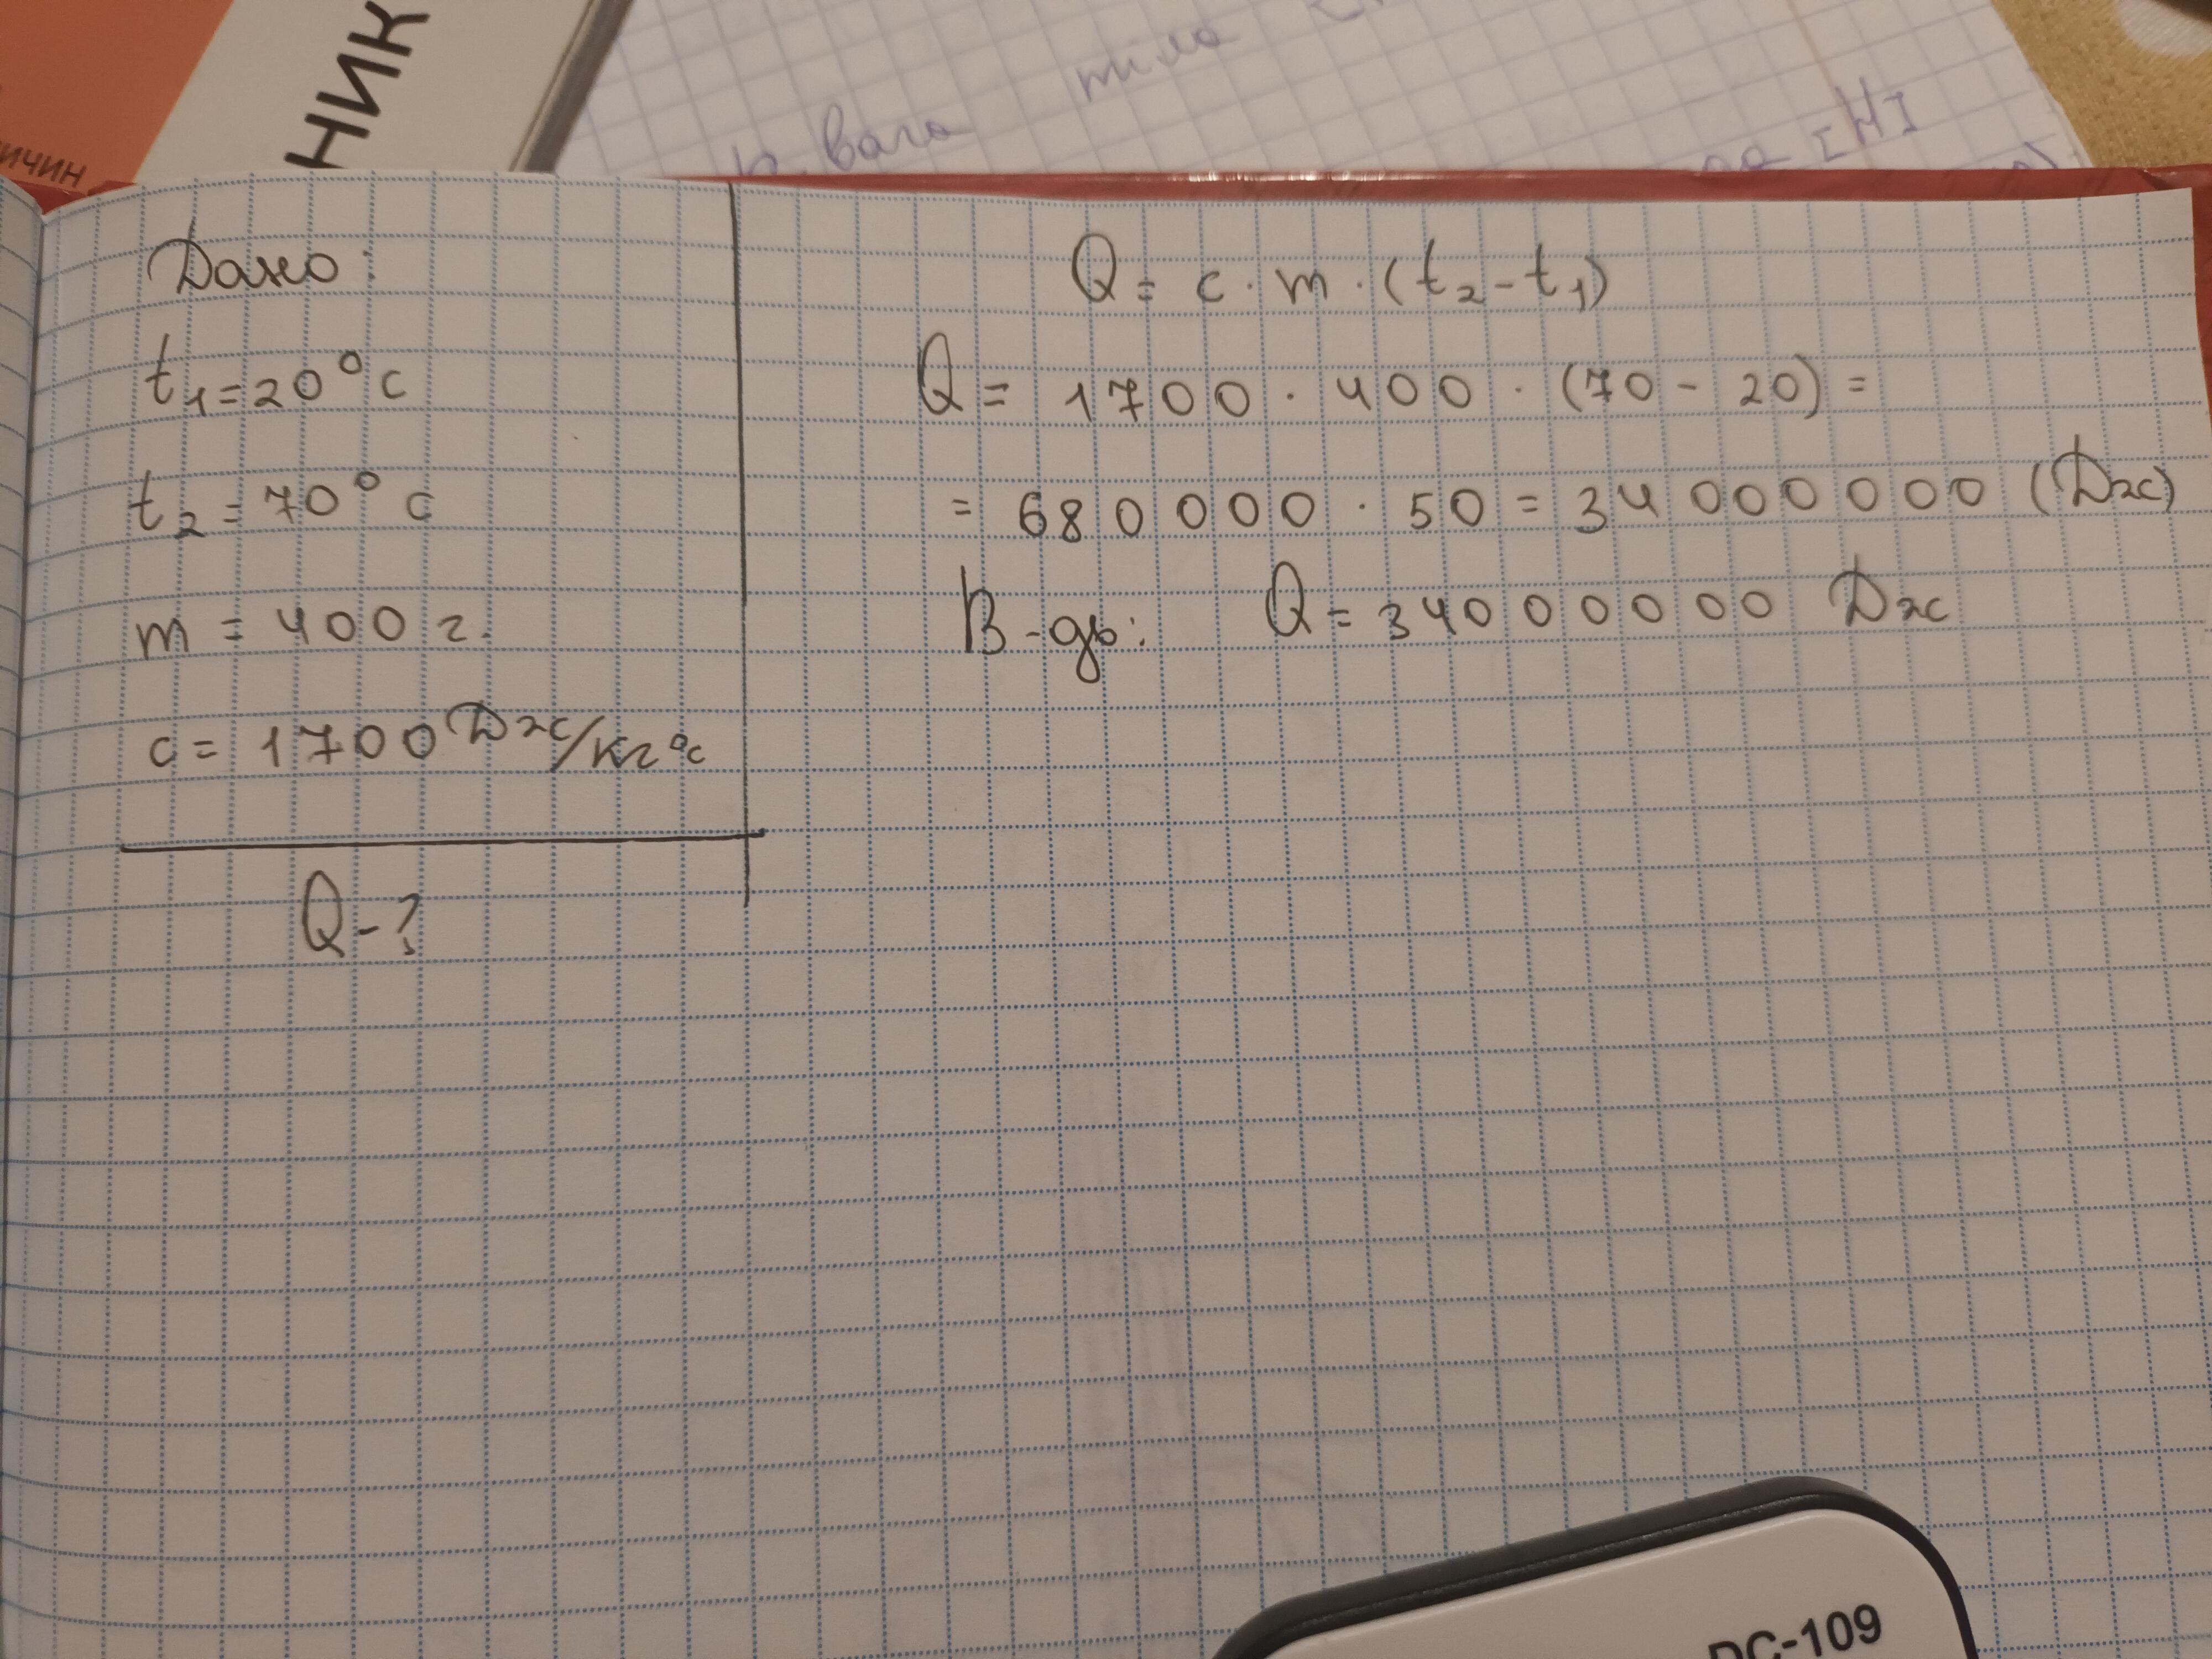 НИК
ИЧИН
вага тіла
Дано:
t₁=20°c
t₂=70°c
m=400г.
c=1700Дж/кг°c
Q-?
Q=c·m·(t₂-t₁)
Q=1700·400·(70-20)=
=680000·50=34000000(Дж)
В-дь: Q=34000000 Дж
DC-109